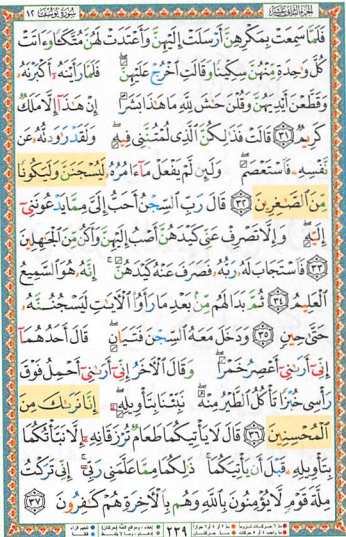 سورة يوسف ١٢
فَلَمَّا سَمِعَتْ بِمَكْرِهِنَّ أَرْسَلَتْ إِلَيْهِنَّ وَأَعْتَدَتْ لَهُنَّ مُتَّكَـًٔا وَءَاتَتْ
كُلَّ وَٰحِدَةٍ مِّنْهُنَّ سِكِّينًا وَقَالَتِ ٱخْرُجْ عَلَيْهِنَّ ۖ فَلَمَّا رَأَيْنَهُۥٓ أَكْبَرْنَهُۥ
وَقَطَّعْنَ أَيْدِيَهُنَّ وَقُلْنَ حَٰشَ لِلَّهِ مَا هَٰذَا بَشَرًا إِنْ هَٰذَآ إِلَّا مَلَكٌ
كَرِيمٌ ٣١ قَالَتْ فَذَٰلِكُنَّ ٱلَّذِى لُمْتُنَّنِى فِيهِ ۖ وَلَقَدْ رَٰوَدتُّهُۥ عَن
نَّفْسِهِۦ فَٱسْتَعْصَمَ ۖ وَلَئِن لَّمْ يَفْعَلْ مَآ ءَامُرُهُۥ لَيُسْجَنَنَّ وَلَيَكُونًا
مِّنَ ٱلصَّٰغِرِينَ ٣٢ قَالَ رَبِّ ٱلسِّجْنُ أَحَبُّ إِلَىَّ مِمَّا يَدْعُونَنِىٓ
إِلَيْهِ ۖ وَإِلَّا تَصْرِفْ عَنِّى كَيْدَهُنَّ أَصْبُ إِلَيْهِنَّ وَأَكُن مِّنَ ٱلْجَٰهِلِينَ
٣٣ فَٱسْتَجَابَ لَهُۥ رَبُّهُۥ فَصَرَفَ عَنْهُ كَيْدَهُنَّ ۚ إِنَّهُۥ هُوَ ٱلسَّمِيعُ
ٱلْعَلِيمُ ٣٤ ثُمَّ بَدَا لَهُم مِّنۢ بَعْدِ مَا رَأَوُا۟ ٱلْءَايَٰتِ لَيَسْجُنُنَّهُۥ
حَتَّىٰ حِينٍ ٣٥ وَدَخَلَ مَعَهُ ٱلسِّجْنَ فَتَيَانِ ۖ قَالَ أَحَدُهُمَآ
إِنِّىٓ أَرَىٰنِىٓ أَعْصِرُ خَمْرًا ۖ وَقَالَ ٱلْءَاخَرُ إِنِّىٓ أَرَىٰنِىٓ أَحْمِلُ فَوْقَ
رَأْسِى خُبْزًا تَأْكُلُ ٱلطَّيْرُ مِنْهُ ۖ نَبِّئْنَا بِتَأْوِيلِهِۦٓ ۖ إِنَّا نَرَىٰكَ مِنَ
ٱلْمُحْسِنِينَ ٣٦ قَالَ لَا يَأْتِيكُمَا طَعَامٌ تُرْزَقَانِهِۦٓ إِلَّا نَبَّأْتُكُمَا
بِتَأْوِيلِهِۦ قَبْلَ أَن يَأْتِيَكُمَا ۚ ذَٰلِكُمَا مِمَّا عَلَّمَنِى رَبِّىٓ ۚ إِنِّى تَرَكْتُ
مِلَّةَ قَوْمٍ لَّا يُؤْمِنُونَ بِٱللَّهِ وَهُم بِٱلْءَاخِرَةِ هُمْ كَٰفِرُونَ ٣٧
٢٣٩